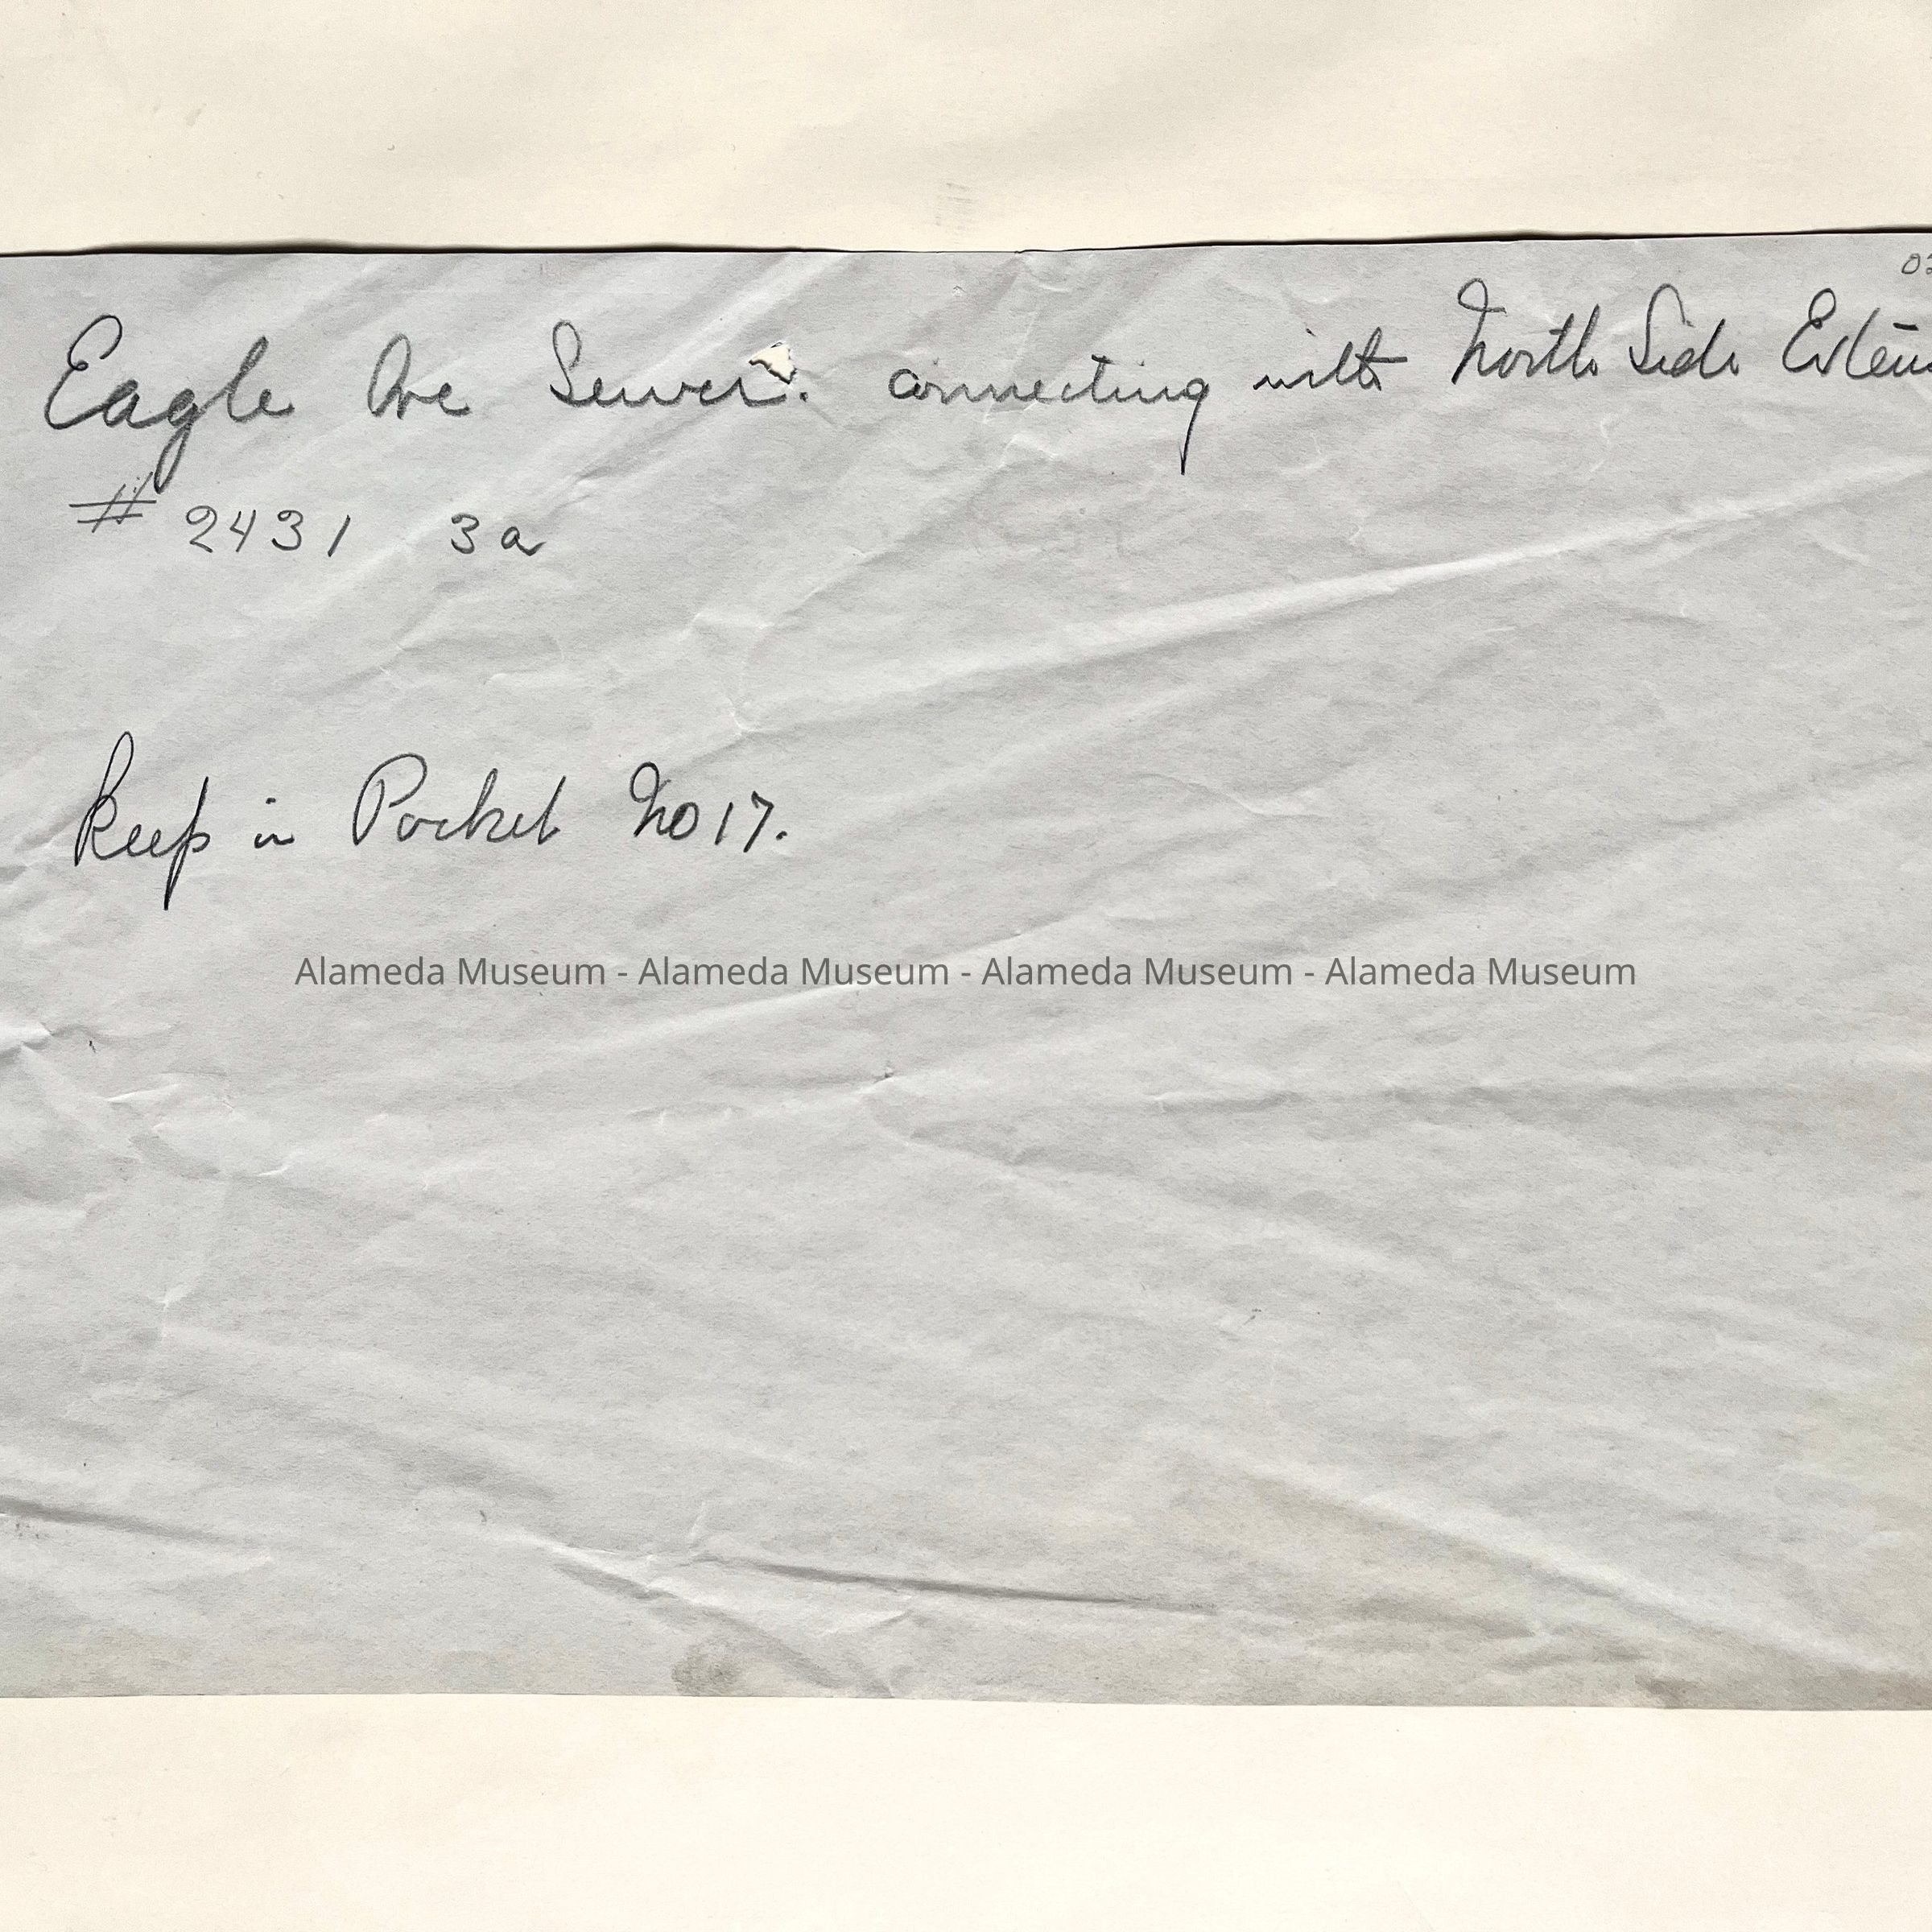 03
Eagle Ave Sewer. connecting with North Side Exten
# 2431 3a
Keep in Pocket No 17.
Alameda Museum - Alameda Museum - Alameda Museum - Alameda Museum